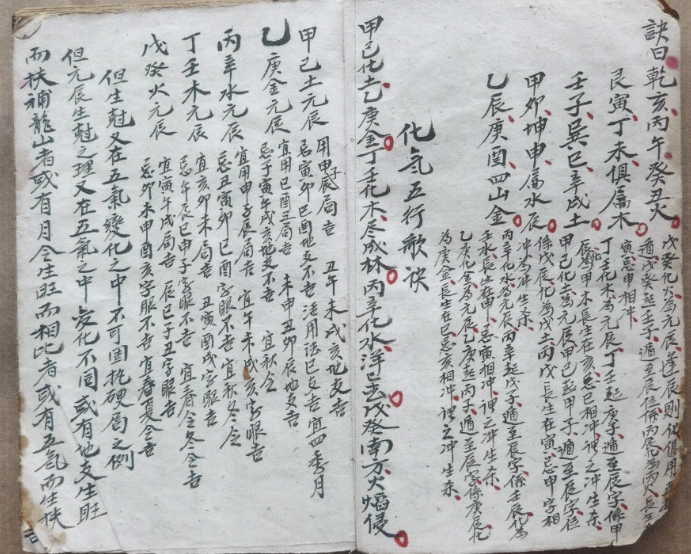 訣曰乾亥丙午癸丑火
艮寅丁未俱屬木
壬子巽巳辛戌土
甲卯坤申屬水辰
乙辰庚酉四山金
戊癸化火為元辰逢辰則化
遁戊癸起壬子遁至辰位係丙辰為丙火長生
寅忌申相冲
丁壬化木為元辰丁壬起庚子遁至辰字係甲
辰為甲木長生在亥忌巳相冲謂之冲生杀
甲己化土為元辰甲己起甲子遁至辰字位
係戊辰化為戊土丙戊長生在寅忌申字相
冲為冲生杀
丙辛化水為元辰丙辛起戊子遁至辰字係壬辰化為
壬水長生在申忌寅相冲謂之冲生杀
乙庚化金為元辰乙庚起丙子遁至辰字係庚辰化
為庚金長生在巳忌亥相冲謂之冲生杀
化氣五行歌訣
甲己化土乙庚金丁壬化木尽成林丙辛化水浮去戊癸南方火焰侵
甲己土元辰
用甲辰局吉 丑午未戌亥地支吉
忌寅卯巳酉地支不吉 宜四季月
乙庚金元辰
宜用巳酉丑局吉 未申丑卯辰地支吉
忌子寅午戌亥地支不吉 宜秋令
丙辛水元辰
宜用申子辰局吉 宜午未戌亥字眼吉
忌丑寅卯巳酉字眼不吉 宜秋冬令
丁壬木元辰
宜亥卯未局吉 丑寅酉戌字眼吉
忌午辰巳申子字眼不吉 宜春令冬令吉
戊癸火元辰
宜寅午戌局吉 辰巳子丑字眼吉
忌卯未申酉亥字眼不吉 宜春夏令吉
但生尅又在五氣變化之中不可固执硬局之例
但元辰生尅之理又在五氣之中变化不同或有地支生旺
而扶補龍山者或有月令生旺而相比者或有五氣而生扶
吉